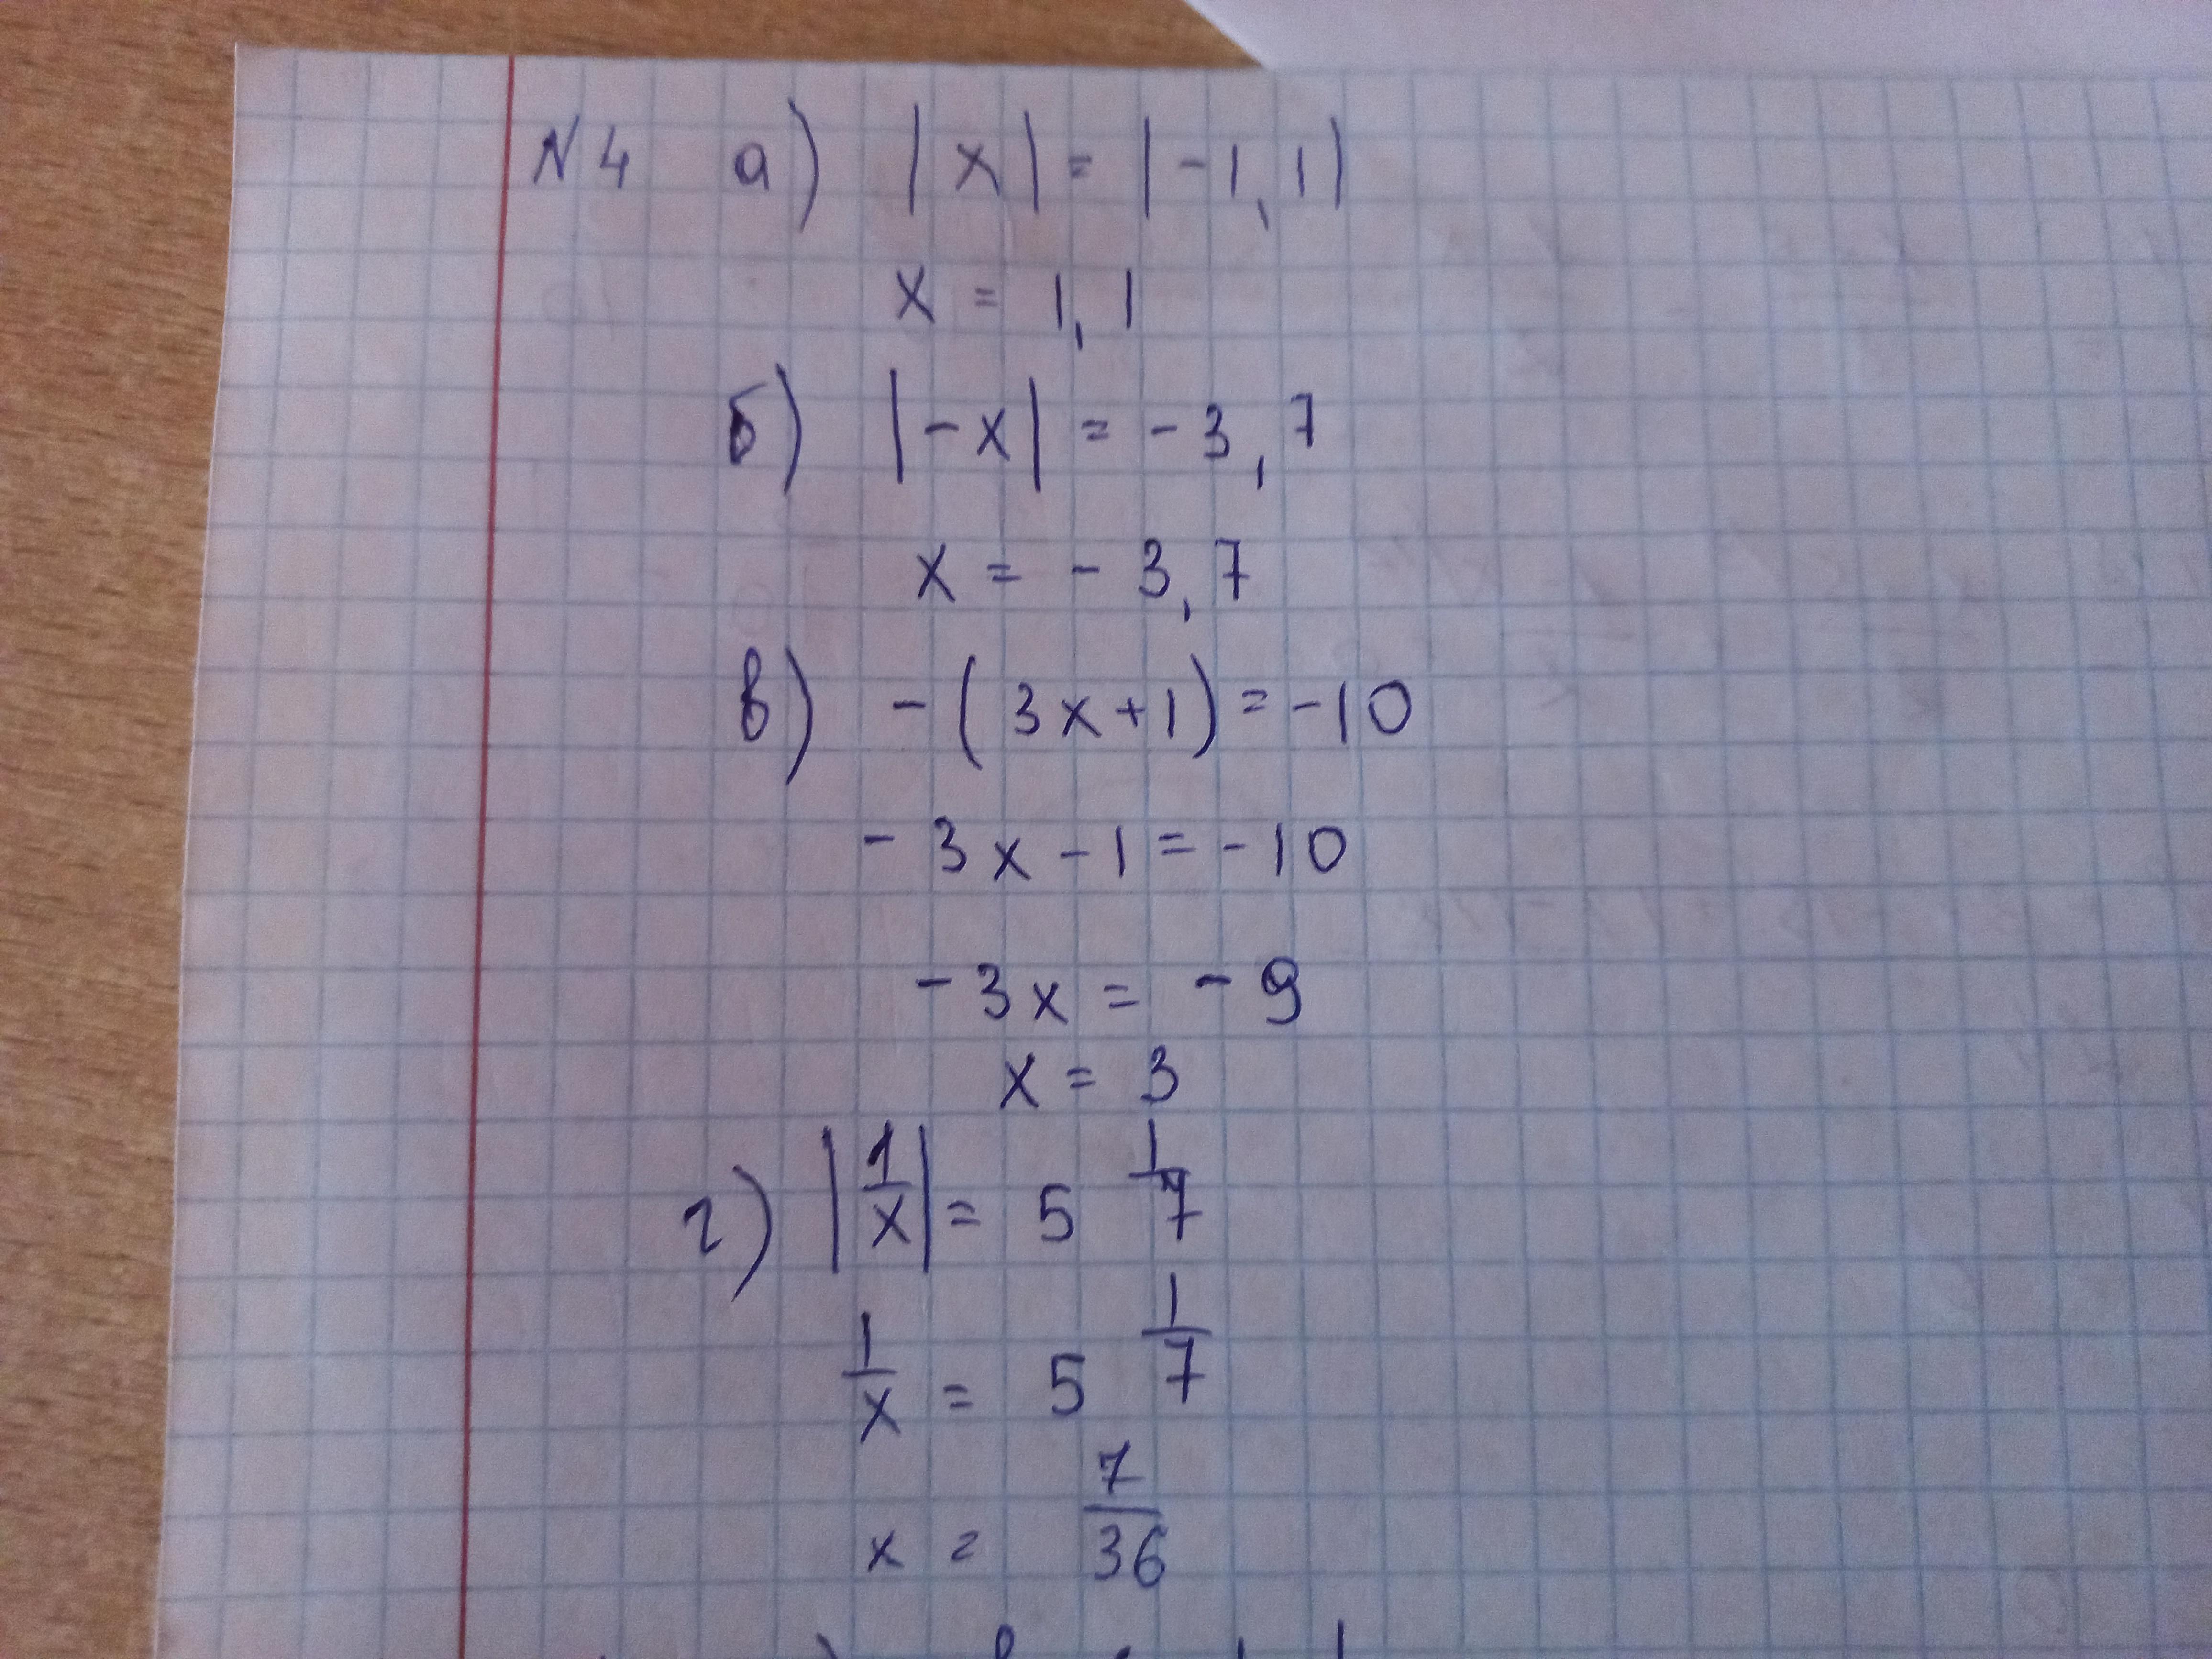 N 4 а) |x| = |-1,1|
x = 1,1
б) |-x| = -3,7
x = -3,7
в) -(3x+1) = -10
-3x-1 = -10
-3x = -9
x = 3
г) |1/x| = 5 1/7
1/x = 5 1/7
x = 7/36